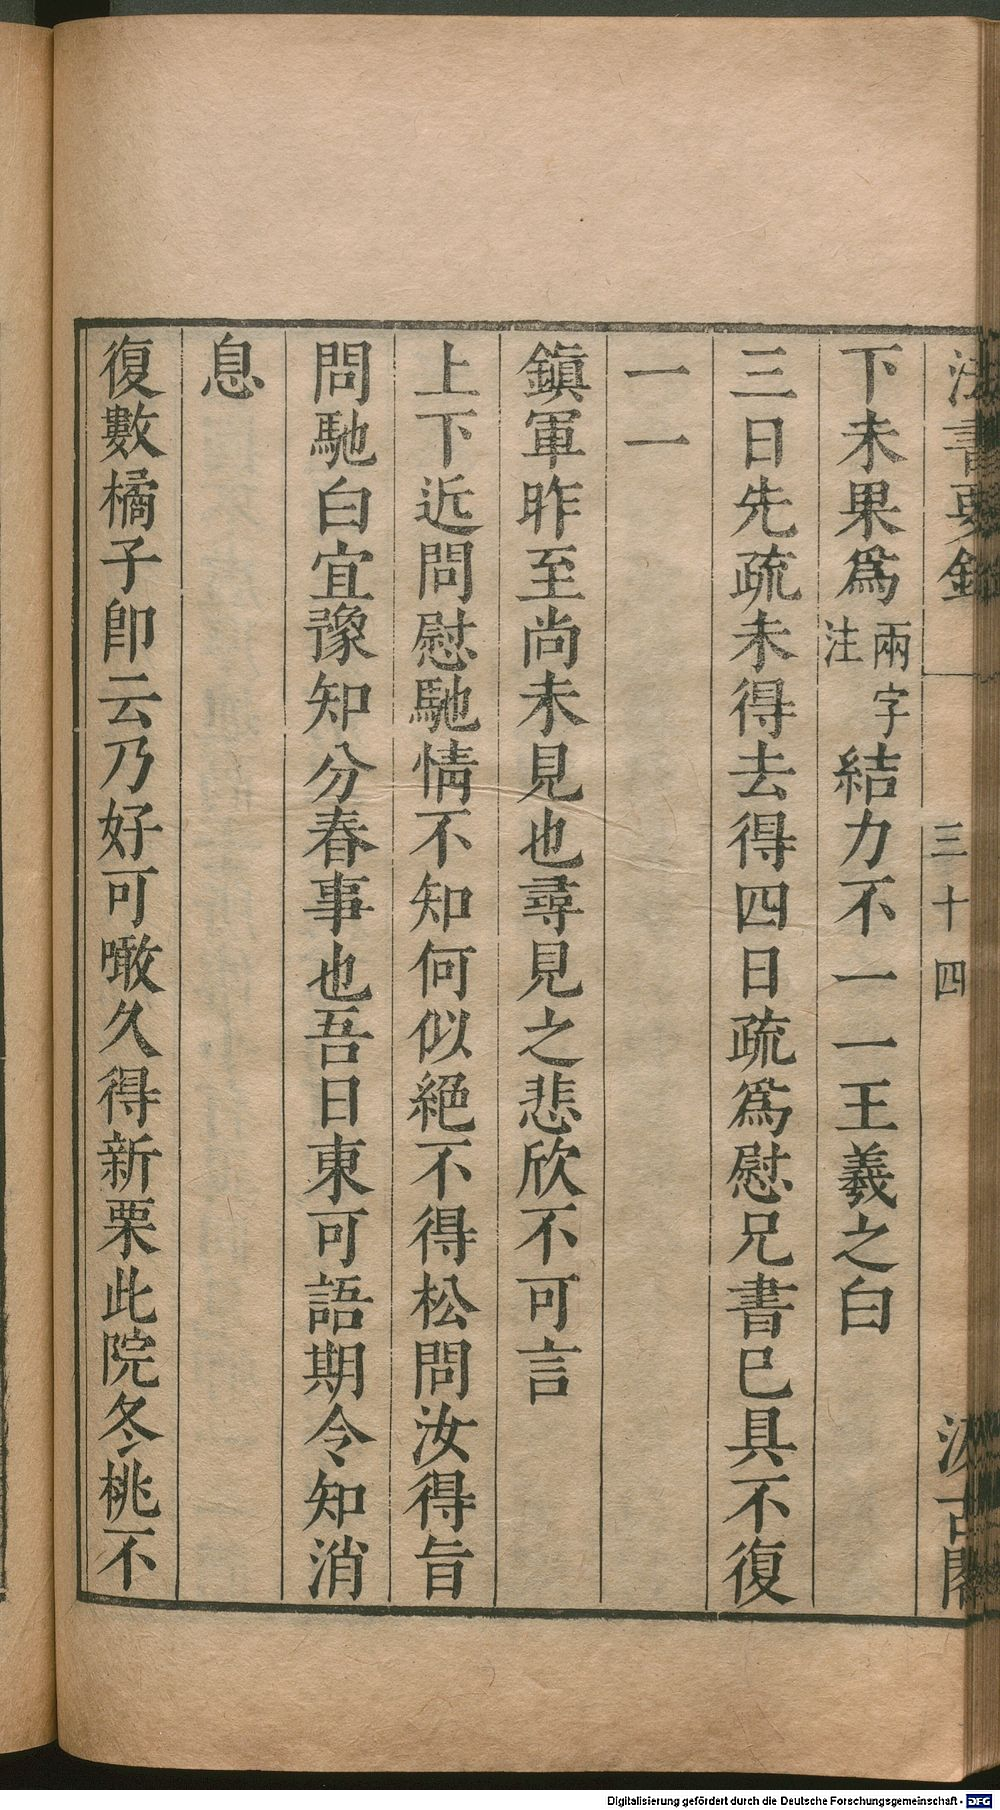 法書要錄 三十四 汲古閣
下未果爲兩字注結力不一一王羲之白
三日先疏未得去得四日疏爲慰兄書已具不復
一一
鎭軍昨至尚未見也尋見之悲欣不可言
上下近問慰馳情不知何似絕不得松問汝得旨
問馳白宜豫知分春事也吾日東可語期令知消
息
復數橘子卽云乃好可噉久得新栗此院冬桃不
Digitalisierung gefördert durch die Deutsche Forschungsgemeinschaft - DFG